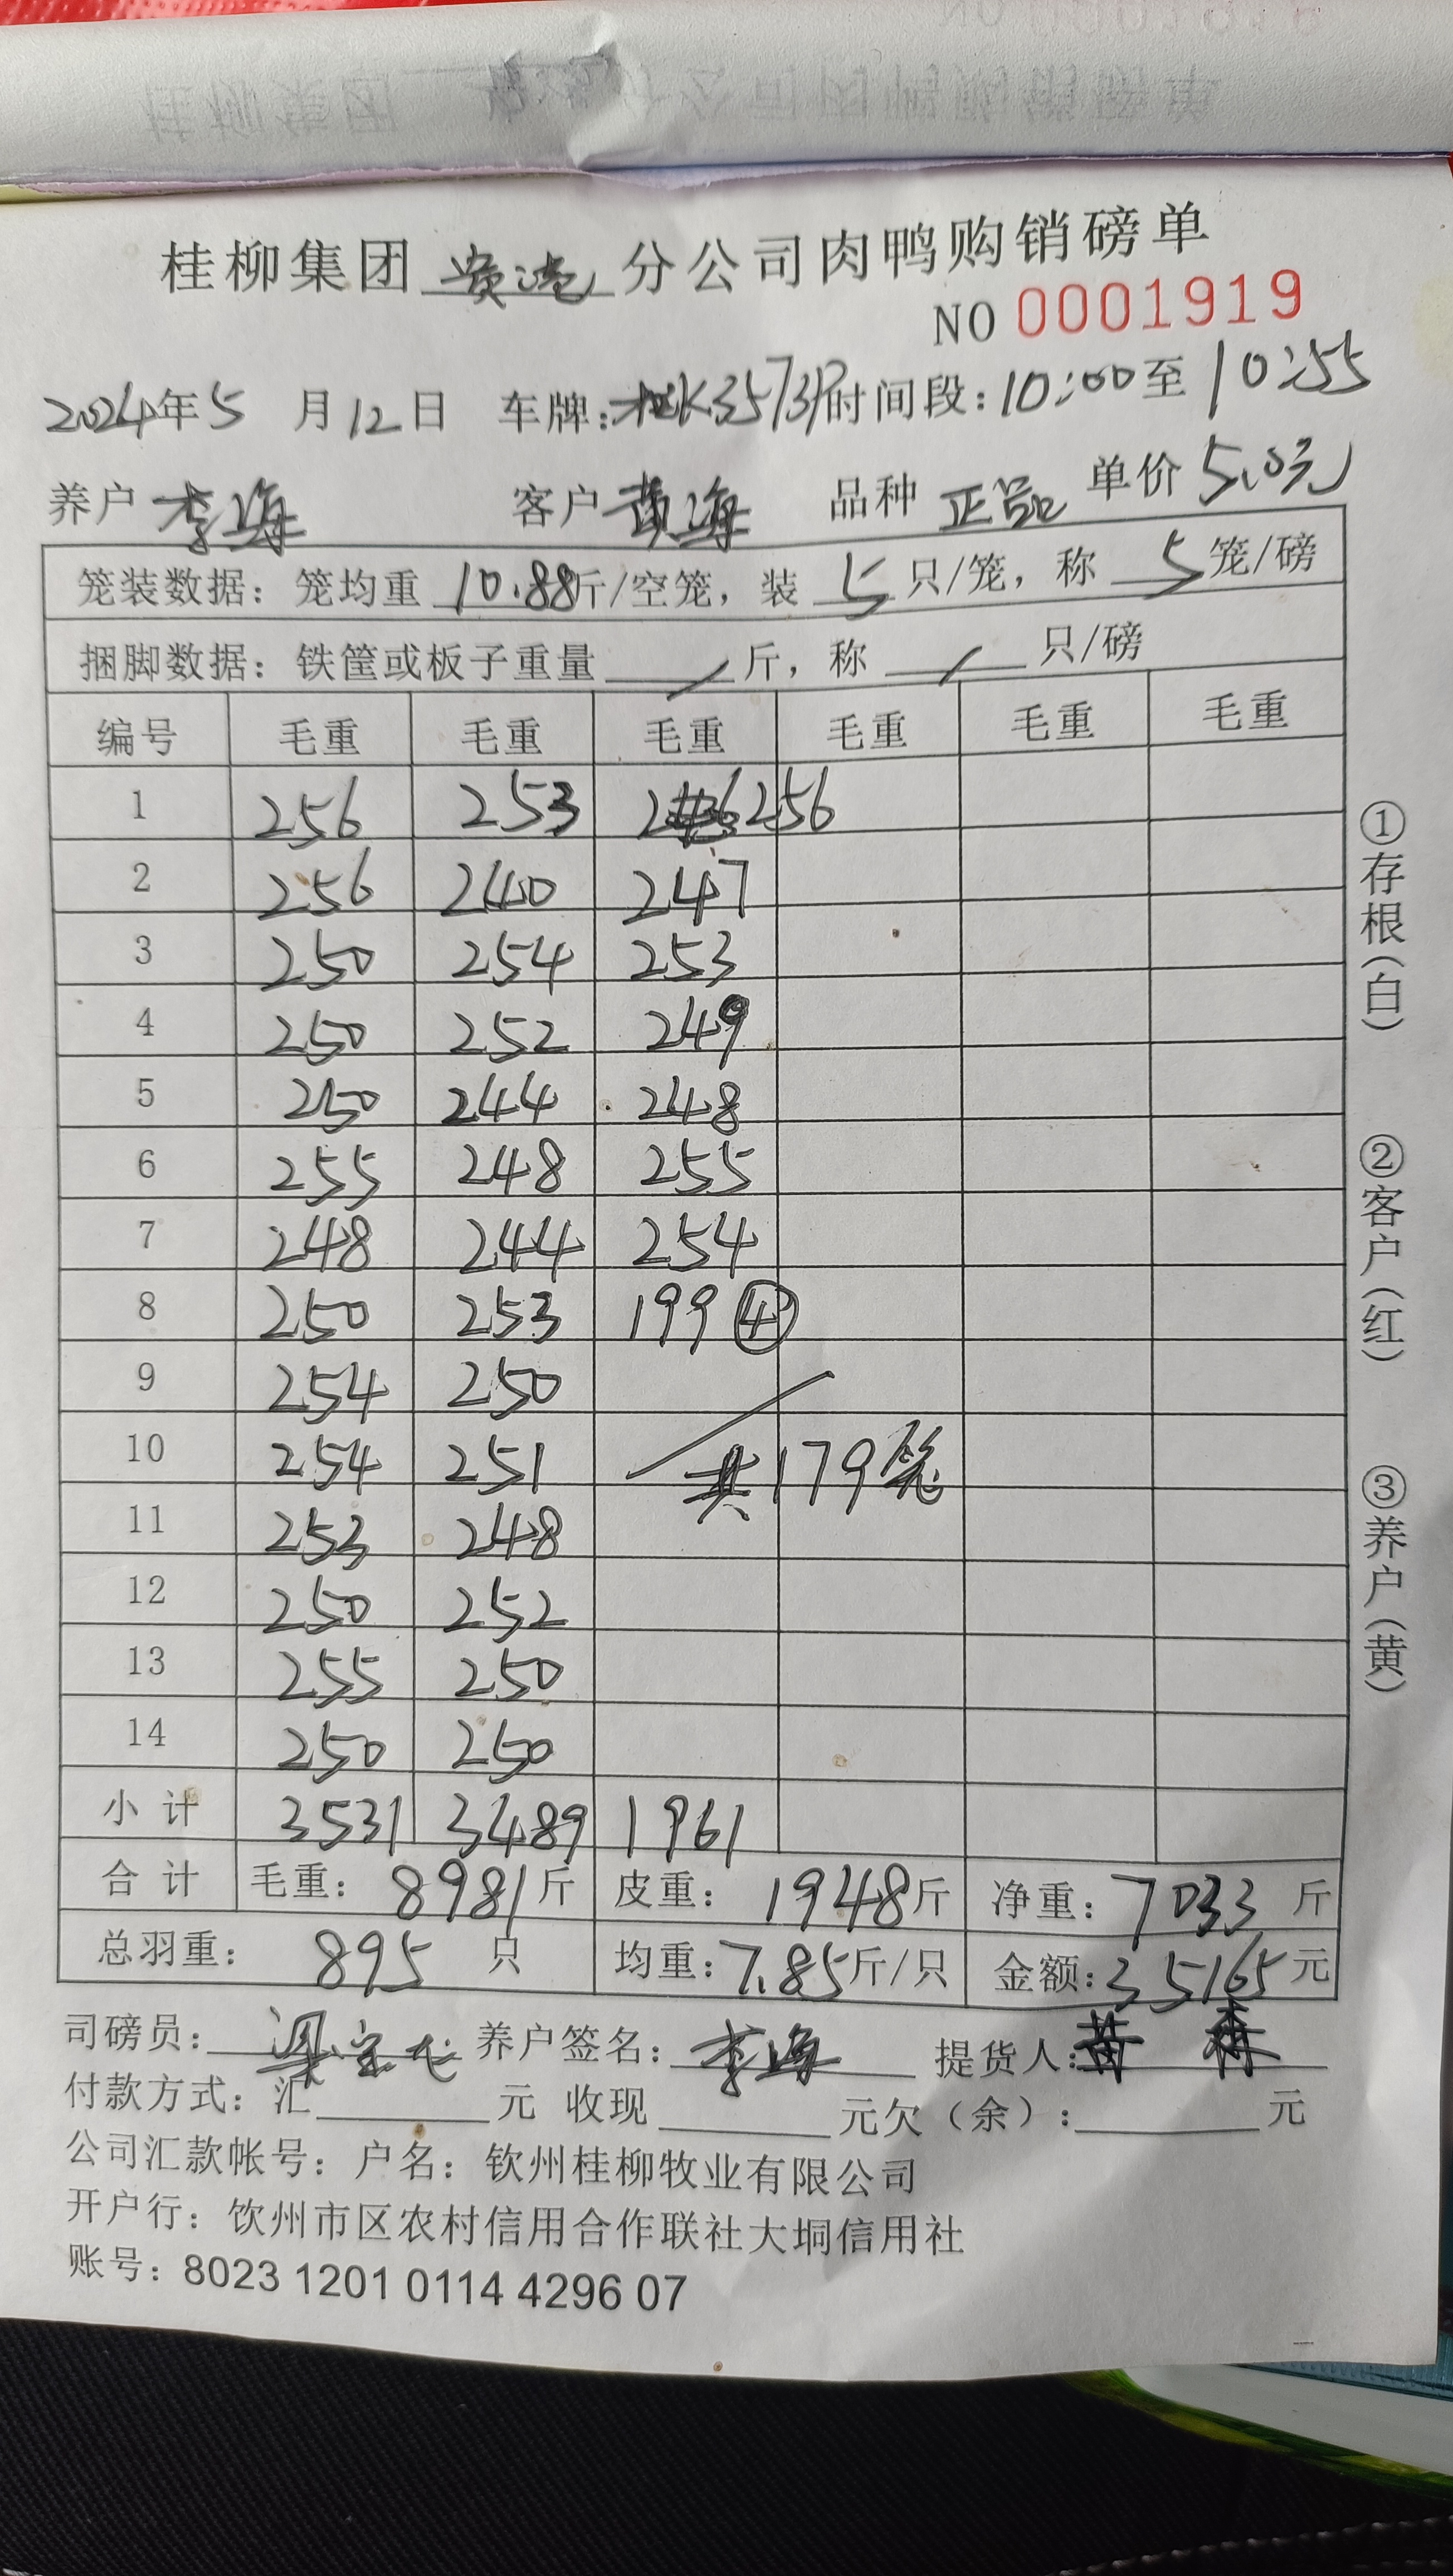 桂柳集团 贵港 分公司肉鸭购销磅单
NO 0001919
2024年5月12日 车牌: 时间段:10:00至10:55
养户 李海 客户 黄海 品种 正品 单价 5.0元
笼装数据: 笼均重 10.88斤/空笼, 装 5 只/笼, 称 5 笼/磅
捆脚数据: 铁筐或板子重量 / 斤, 称 / 只/磅
编号 毛重 毛重 毛重 毛重 毛重 毛重
1 256 253 256
2 256 240 247
3 250 254 253
4 250 252 249
5 250 244 248
6 255 248 255
7 248 244 254
8 250 253 199 ④
9 254 250
10 254 251 共179笼
11 253 248
12 250 252
13 255 250
14 250 250
小计 3531 3489 1961
合计 毛重: 8981斤 皮重: 1948斤 净重: 7033 斤
总羽重: 895 只 均重: 7.85斤/只 金额: 35165元
司磅员: 养户签名: 李海 提货人: 黄
付款方式: 汇 元 收现 元欠(余): 元
公司汇款帐号: 户名: 钦州桂柳牧业有限公司
开户行: 饮州市区农村信用合作联社大垌信用社
账号: 8023 1201 0114 4296 07
①存根(白)
②客户(红)
③养户(黄)